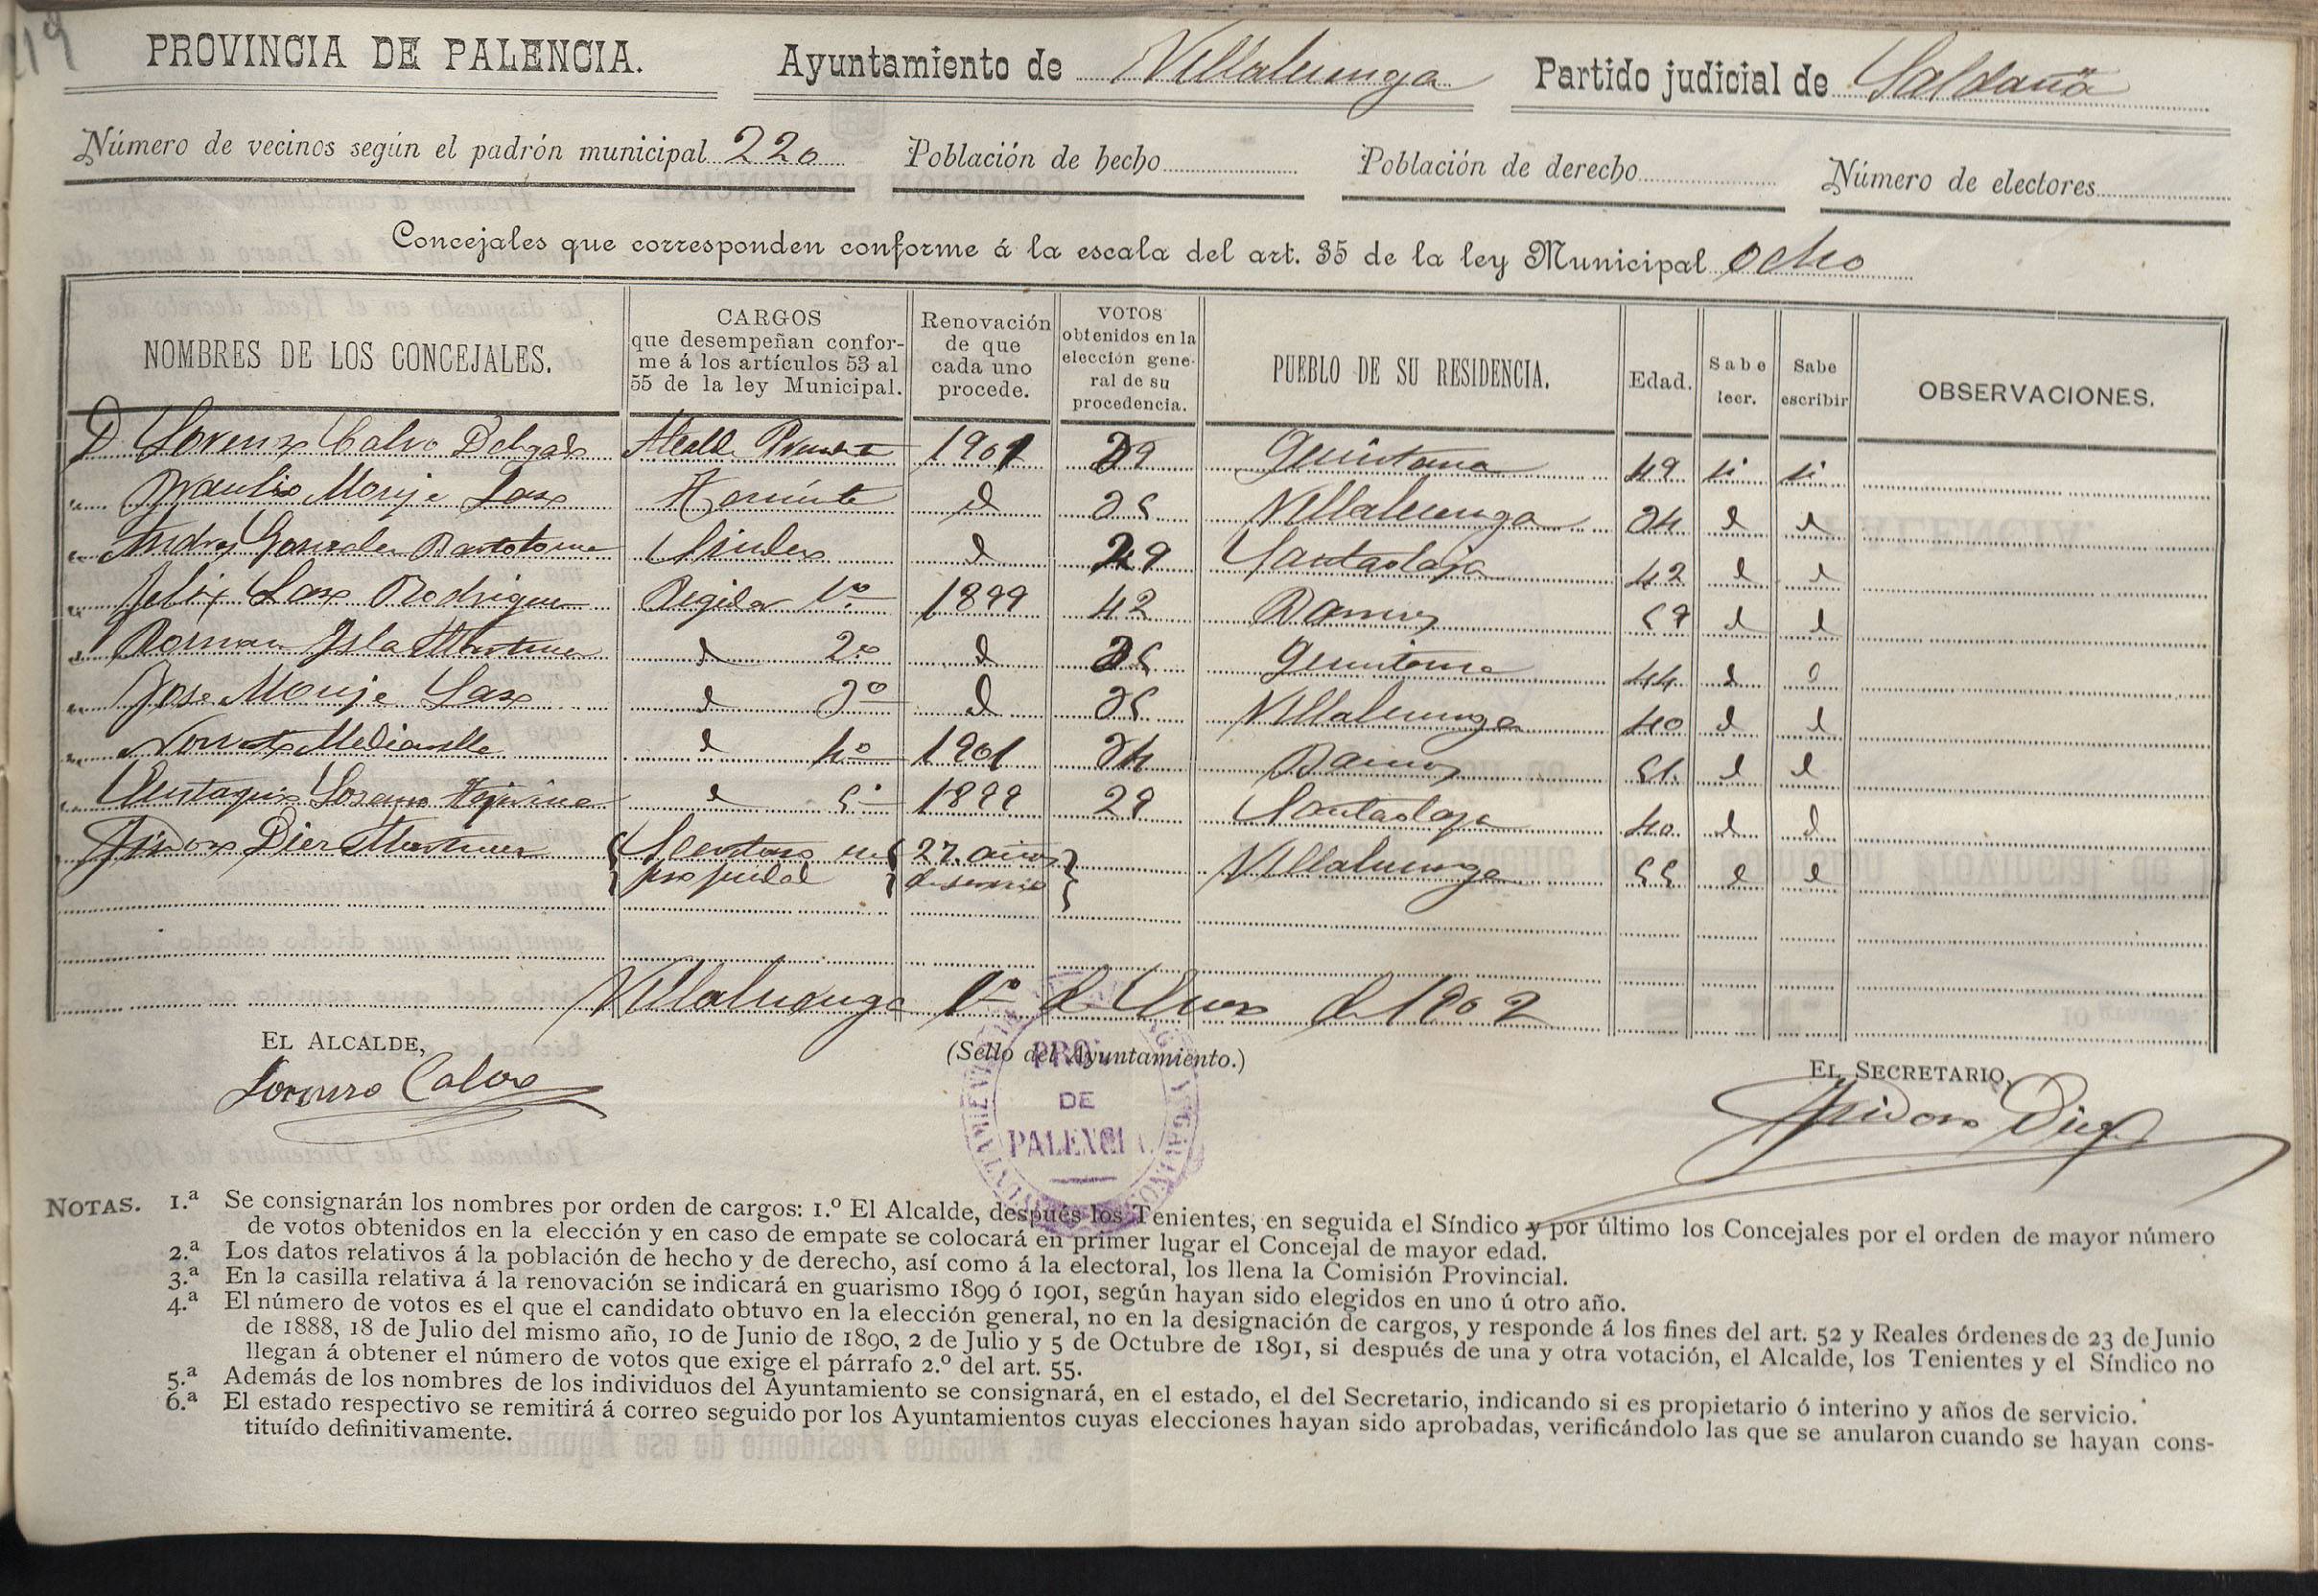 219
PROVINCIA DE PALENCIA. Ayuntamiento de Villaluenga Partido judicial de Saldaña
Número de vecinos según el padrón municipal 220 Población de hecho Población de derecho Número de electores
Concejales que corresponden conforme á la escala del art. 35 de la ley Municipal ocho
NOMBRES DE LOS CONCEJALES. CARGOS que desempeñan conforme á los artículos 53 al 55 de la ley Municipal. Renovación de que cada uno procede. VOTOS obtenidos en la elección general de su procedencia. PUEBLO DE SU RESIDENCIA. Edad. Sabe leer. Sabe escribir OBSERVACIONES.
D. Lorenzo Calvo Delgado Alcalde 1901 29 Quintana 49 si si
" Braulio Monje Laso id 25 Villaluenga 34 id id
" Andres Gonzalez Bartolome Sindico id 29 Santaolaja 42 id id
" Felix Laso Rodriguez Regidor 1º 1899 42 Barrios id id
" Roman Isla Martinez id 2º id 25 Quintana 44 id id
" Jose Monje Laso id 3º id 25 Villaluenga 40 id id
" id 4º 1901 24 Barrios 51 id id
" Eustaquio Lozano id 5º 1899 29 Santaolaja 40 id id
Isidoro Diez Martinez Secretario en propiedad 27 años de servicio Villaluenga 55 id id
Villaluenga 1º de Enero de 1902
EL ALCALDE, (Sello del Ayuntamiento.) EL SECRETARIO,
Lorenzo Calvo PROV. DE PALENCIA Isidoro Diez
NOTAS. 1.ª Se consignarán los nombres por orden de cargos: 1.º El Alcalde, después los Tenientes, en seguida el Síndico y por último los Concejales por el orden de mayor número
de votos obtenidos en la elección y en caso de empate se colocará en primer lugar el Concejal de mayor edad.
2.ª Los datos relativos á la población de hecho y de derecho, así como á la electoral, los llena la Comisión Provincial.
3.ª En la casilla relativa á la renovación se indicará en guarismo 1899 ó 1901, según hayan sido elegidos en uno ú otro año.
4.ª El número de votos es el que el candidato obtuvo en la elección general, no en la designación de cargos, y responde á los fines del art. 52 y Reales órdenes de 23 de Junio
de 1888, 18 de Julio del mismo año, 10 de Junio de 1890, 2 de Julio y 5 de Octubre de 1891, si después de una y otra votación, el Alcalde, los Tenientes y el Síndico no
llegan á obtener el número de votos que exige el párrafo 2.º del art. 55.
5.ª Además de los nombres de los individuos del Ayuntamiento se consignará, en el estado, el del Secretario, indicando si es propietario ó interino y años de servicio.
6.ª El estado respectivo se remitirá á correo seguido por los Ayuntamientos cuyas elecciones hayan sido aprobadas, verificándolo las que se anularon cuando se hayan cons-
tituído definitivamente.